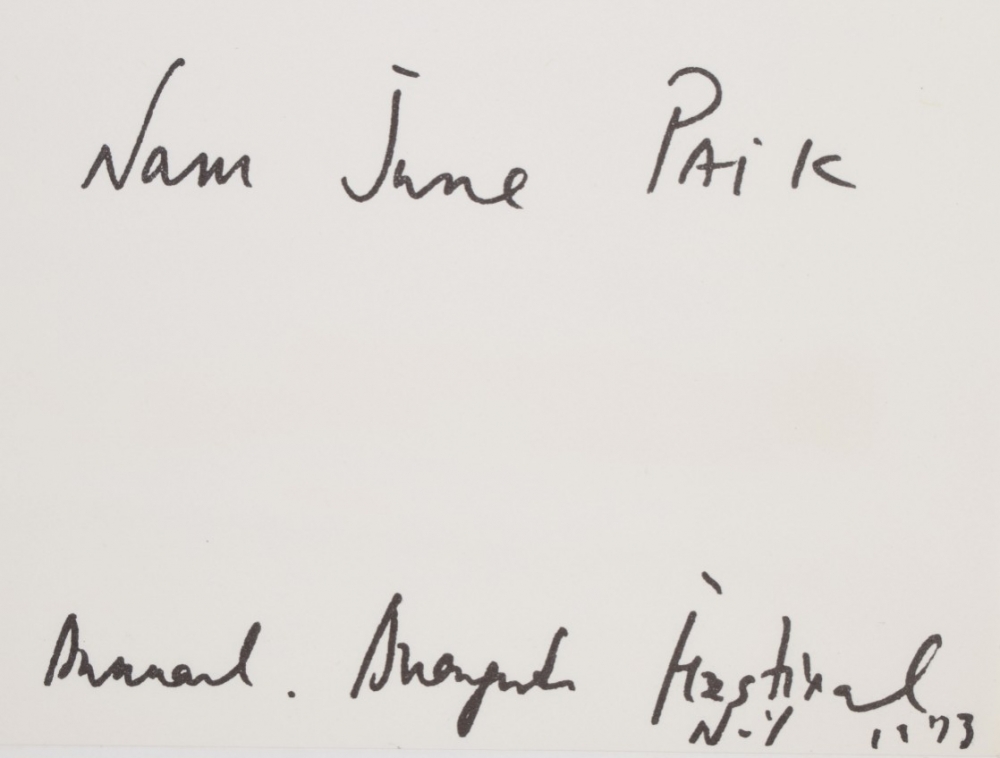 Nam June PAiK
Annual. Avangard Festival
N.Y 1973